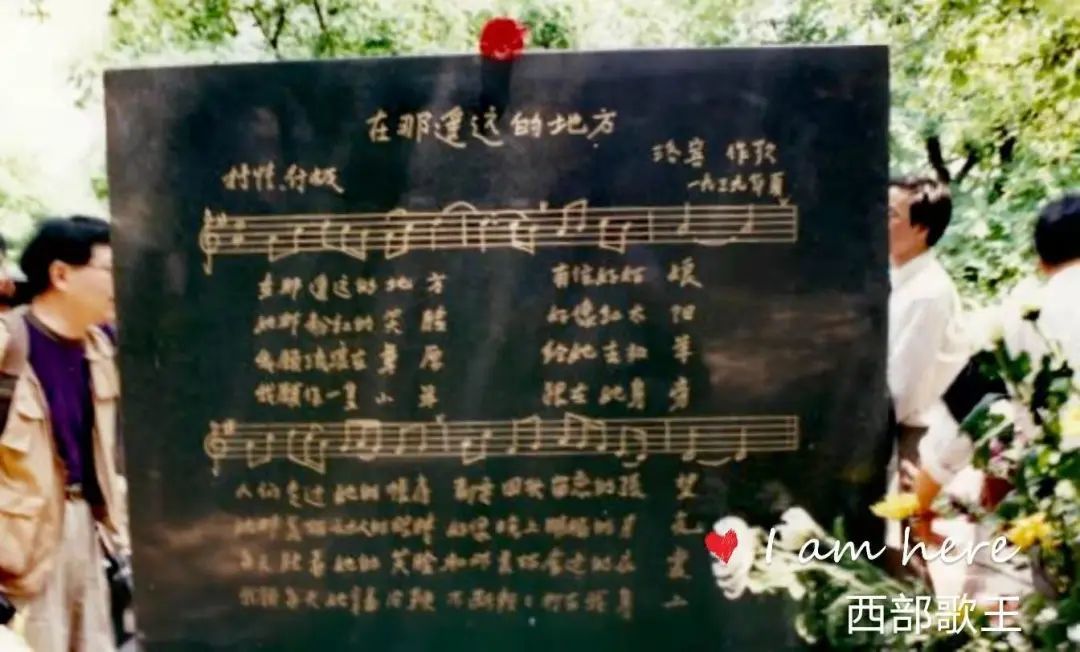 在那遥远的地方
洛宾 作歌
抒情、行板
一九三九年夏
在那遥远的地方 有位好姑娘
她那粉红的笑脸 好像红太阳
我愿流浪在草原 给她去牧羊
我愿作一只小羊 跟在她身旁
人们走过她的帐房 都要回头留恋的张望
她那美丽动人的眼睛 好像晚上明媚的月光
每天看着她的笑脸和那美丽金边的衣裳
我愿每天她拿着皮鞭 不断轻轻打在我身上
I am here
西部歌王